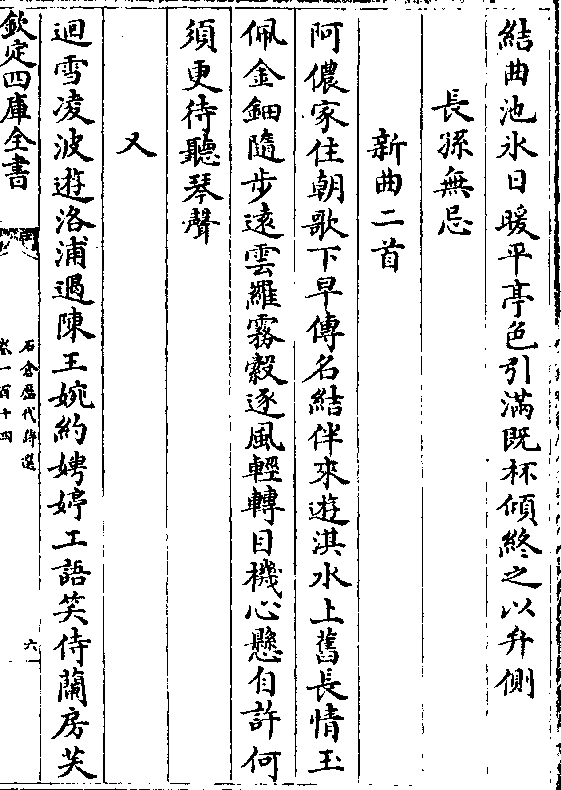 結曲池氷日暖平亭色引滿既杯傾終之以弁側
長孫無忌
新曲二首
阿儂家住朝歌下早傳名結伴來遊淇水上舊長情玉
佩金鈿隨步遠雲羅霧縠逐風輕轉目機心懸自許何
須更待聽琴聲
又
迴雪凌波遊洛浦遇陳王婉約娉婷工語笑侍蘭房芙
欽定四庫全書
石倉歷代詩選
卷一百十四
六